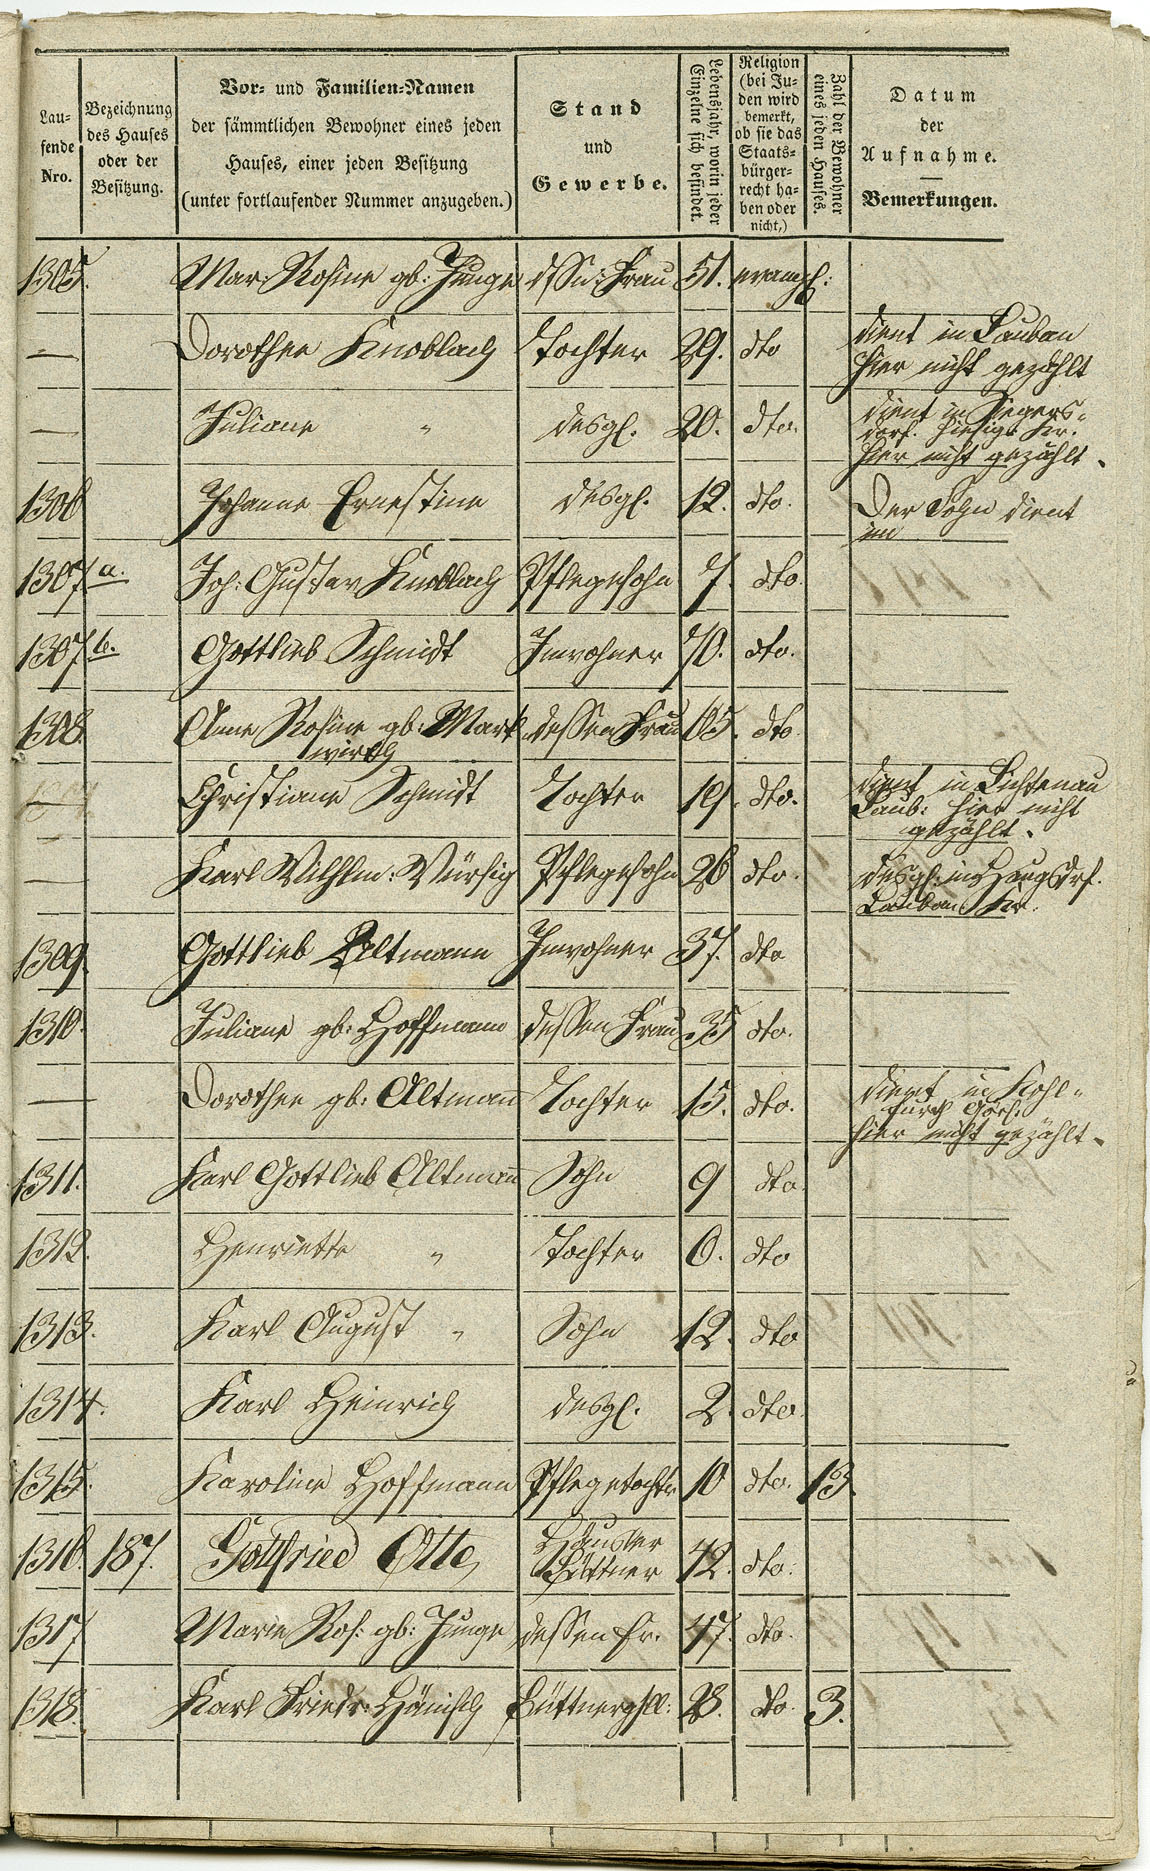 Lau-
fende
Nro.
Bezeichnung
des Hauses
oder der
Besitzung.
Vor- und Familien-Namen
der sämmtlichen Bewohner eines jeden
Hauses, einer jeden Besitzung
(unter fortlaufender Nummer anzugeben.)
Stand
und
Gewerbe.
Lebensjahr, worin jeder
Einzelne sich befindet.
Religion
(bei Ju-
den wird
bemerkt,
ob sie das
Staats-
bürger-
recht ha-
ben oder
nicht,)
Zahl der Bewohner
eines jeden Hauses.
Datum
der
Aufnahme.
Bemerkungen.
1305. Mar: Rosine gb: Junge dssn: Frau 51. evangl:
— Dorothee Knoblach Tochter 29. dto dient in Lauban
hier nicht gezählt
— Juliane " desgl. 20. dto. dient in Siegers-
dorf. hiesige Kr.
hier nicht gezählt.
1306 Johanne Ernestine desgl. 12. dto. Der Sohn dient
im
1307 a. Joh: Gustav Knoblach Pflegesohn 7. dto.
1307 b. Gottlieb Schmidt Inwohner 70. dto.
1308. Anne Rosine gb: Mark- dessen Frau 65. dto.
wirth
Christiane Schmidt Tochter 19. dto. dient in Lichtenau
Laub: hier nicht
gezählt.
— Karl Wilhlm: Würsig Pflegesohn 26 dto. desgl: in Haugsdrf.
Lauban Kr.
1309. Gottlieb Altmann Inwohner 37. dto
1310. Juliane gb: Hoffmann dessen Frau 35 dto.
— Dorothee gb: Altmann Tochter 15. dto. dient in Kohl-
furth Görl:
hier nicht gezählt.
1311. Karl Gottlieb Altmann Sohn 9 dto.
1312. Henriette " Tochter 6. dto
1313. Karl August " Sohn 12. dto
1314. Karl Heinrich desgl. 2. dto.
1315. Karoline Hoffmann Pflegetochtr 10 dto. 13.
1316. 187. Gottfried Otte, Häusler
Büttner 42. dto:
1317 Marie Ros: gb: Junge dessen Fr. 47. dto.
1318. Karl Friedr: Hänisch Büttnergsll: 28. dto. 3.